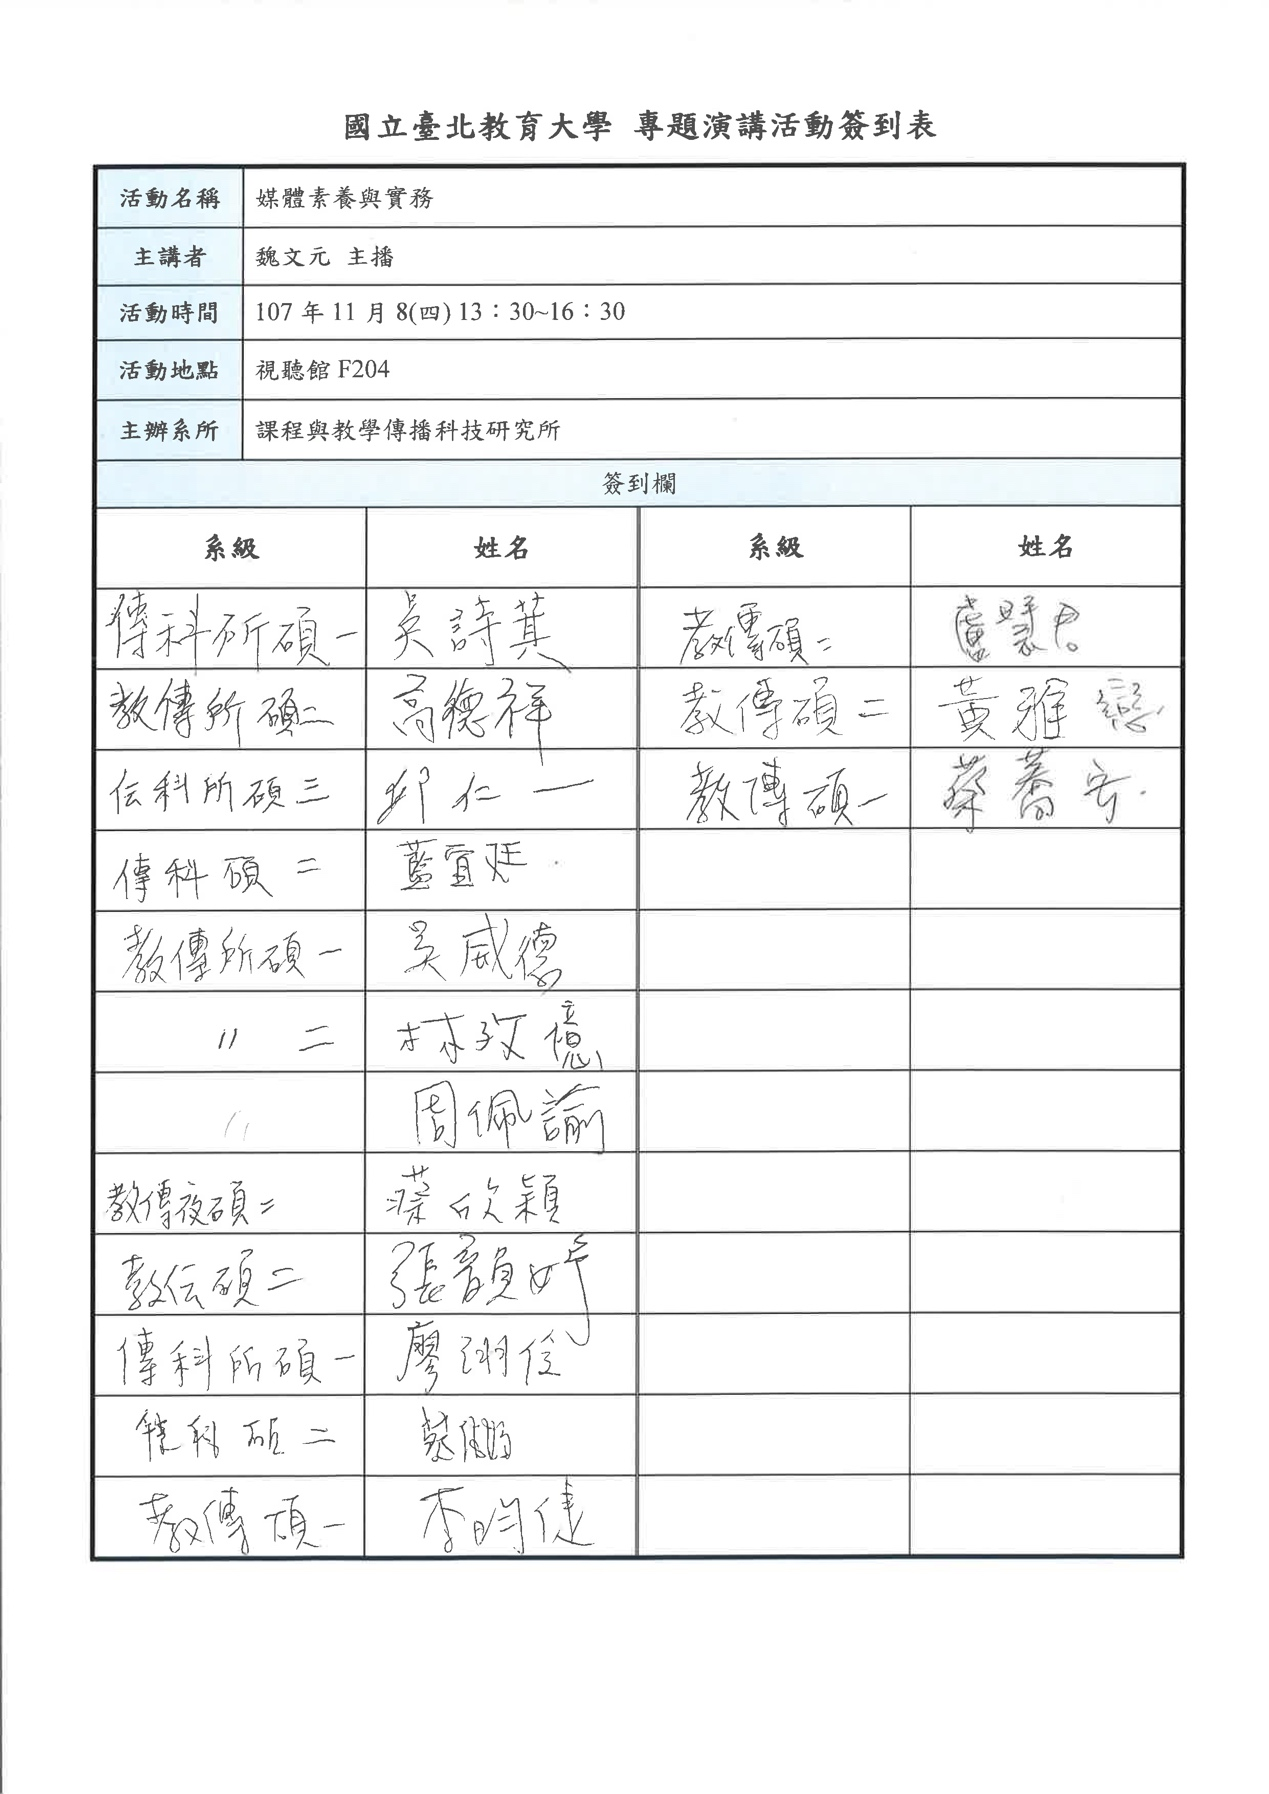 國立臺北教育大學 專題演講活動簽到表
活動名稱 媒體素養與實務
主講者 魏文元 主播
活動時間 107 年 11 月 8(四) 13：30~16：30
活動地點 視聽館 F204
主辦系所 課程與教學傳播科技研究所
簽到欄
系級 姓名 系級 姓名
傳科所碩一 吳詩萁 教傳碩二 盧慧君
教傳所碩二 高德祥 教傳碩二 黃雅戀
伝科所碩三 邱仁一 教傳碩一 蔡蕎安
傳科碩二 藍宜廷
教傳所碩一 吳威德
〃 二 林孜憶
〃 周佩諭
教傳夜碩二 蔡欣穎
教伝碩二 張韻婷
傳科所碩一 廖翊佺
傳科碩二
教傳碩一 李昀倢